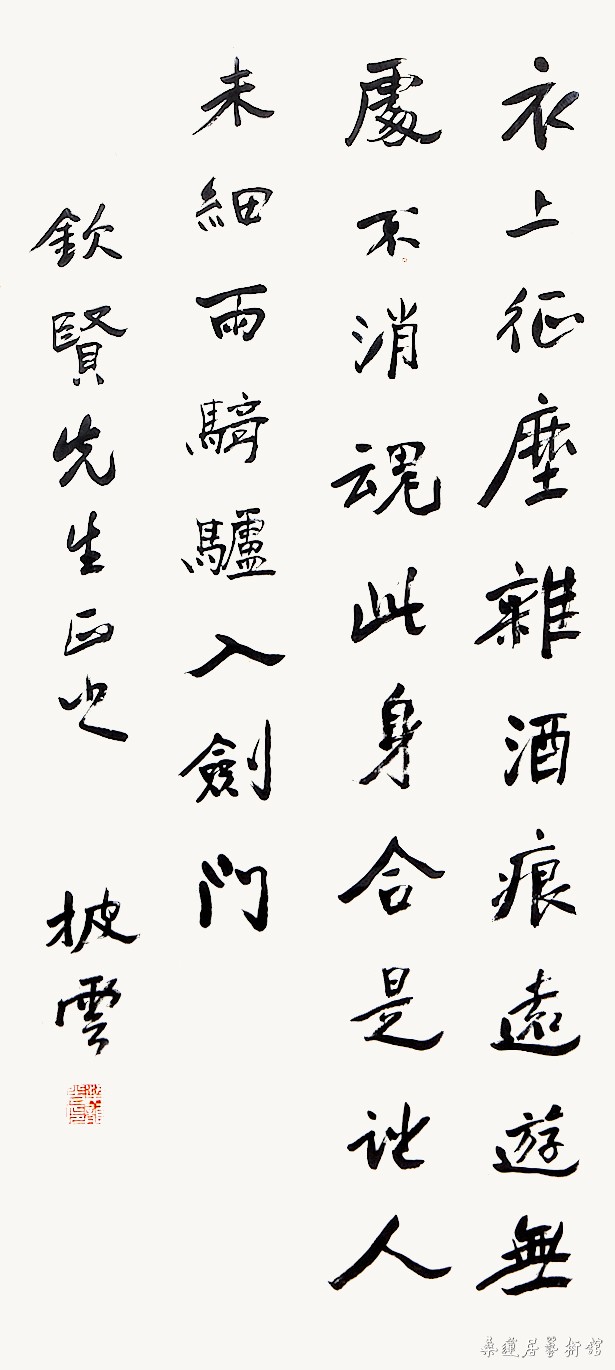 衣上征塵雜酒痕遠遊無
處不消魂此身合是詩人
未細雨騎驢入劍門
欽賢先生正之
披雲
桑蓮居藝術館